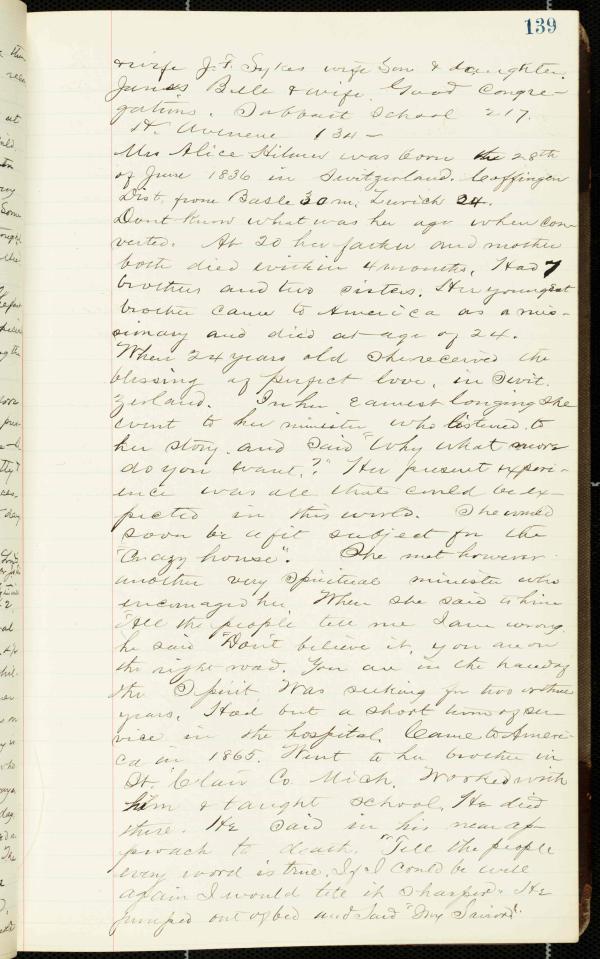 139
& wife J. F. Sykes wife Son & daughter.
James Belle & wife Good Congre-
gations. Sabbath School 217.
St. 134 -
Mrs Alice Hilmer was born the 28th
of June 1836 in Switzerland.
Dist. from Basle 30 m; Zurich 24.
Dont know what was her age when con-
verted. At 20 her father and mother
both died within 4 months. Had 7
brothers and two sisters. Her youngest
brother came to America as a mis-
sionary and died at age of 24.
When 24 years old She received the
blessing of perfect love, in Swit-
zerland. In her earnest longing She
went to her minister who listened to
her story. and Said "Why what more
do you want,?" Her present experi-
ence was all that could be ex-
pected in this world. She would
soon be a fit subject for the
"Crazy house". She met however
another very Spiritual minister who
encouraged her. When she said to him
"All the people tell me I am wrong
he said "Don't believe it, you are on
the right road. You are in the hands of
the Spirit. Was seeking for two or three
years. Had but a short term of ser-
vice in the hospital. Came to Ameri-
ca in 1865. Went to her brother in
St. Clair Co. Mich. Worked with
him & taught school. He died
there. He said in his near ap-
proach to death. "Tell the people
every word is true. If I could be well
again I would tell it sharper. He
jumped out of bed and said "My Savior!